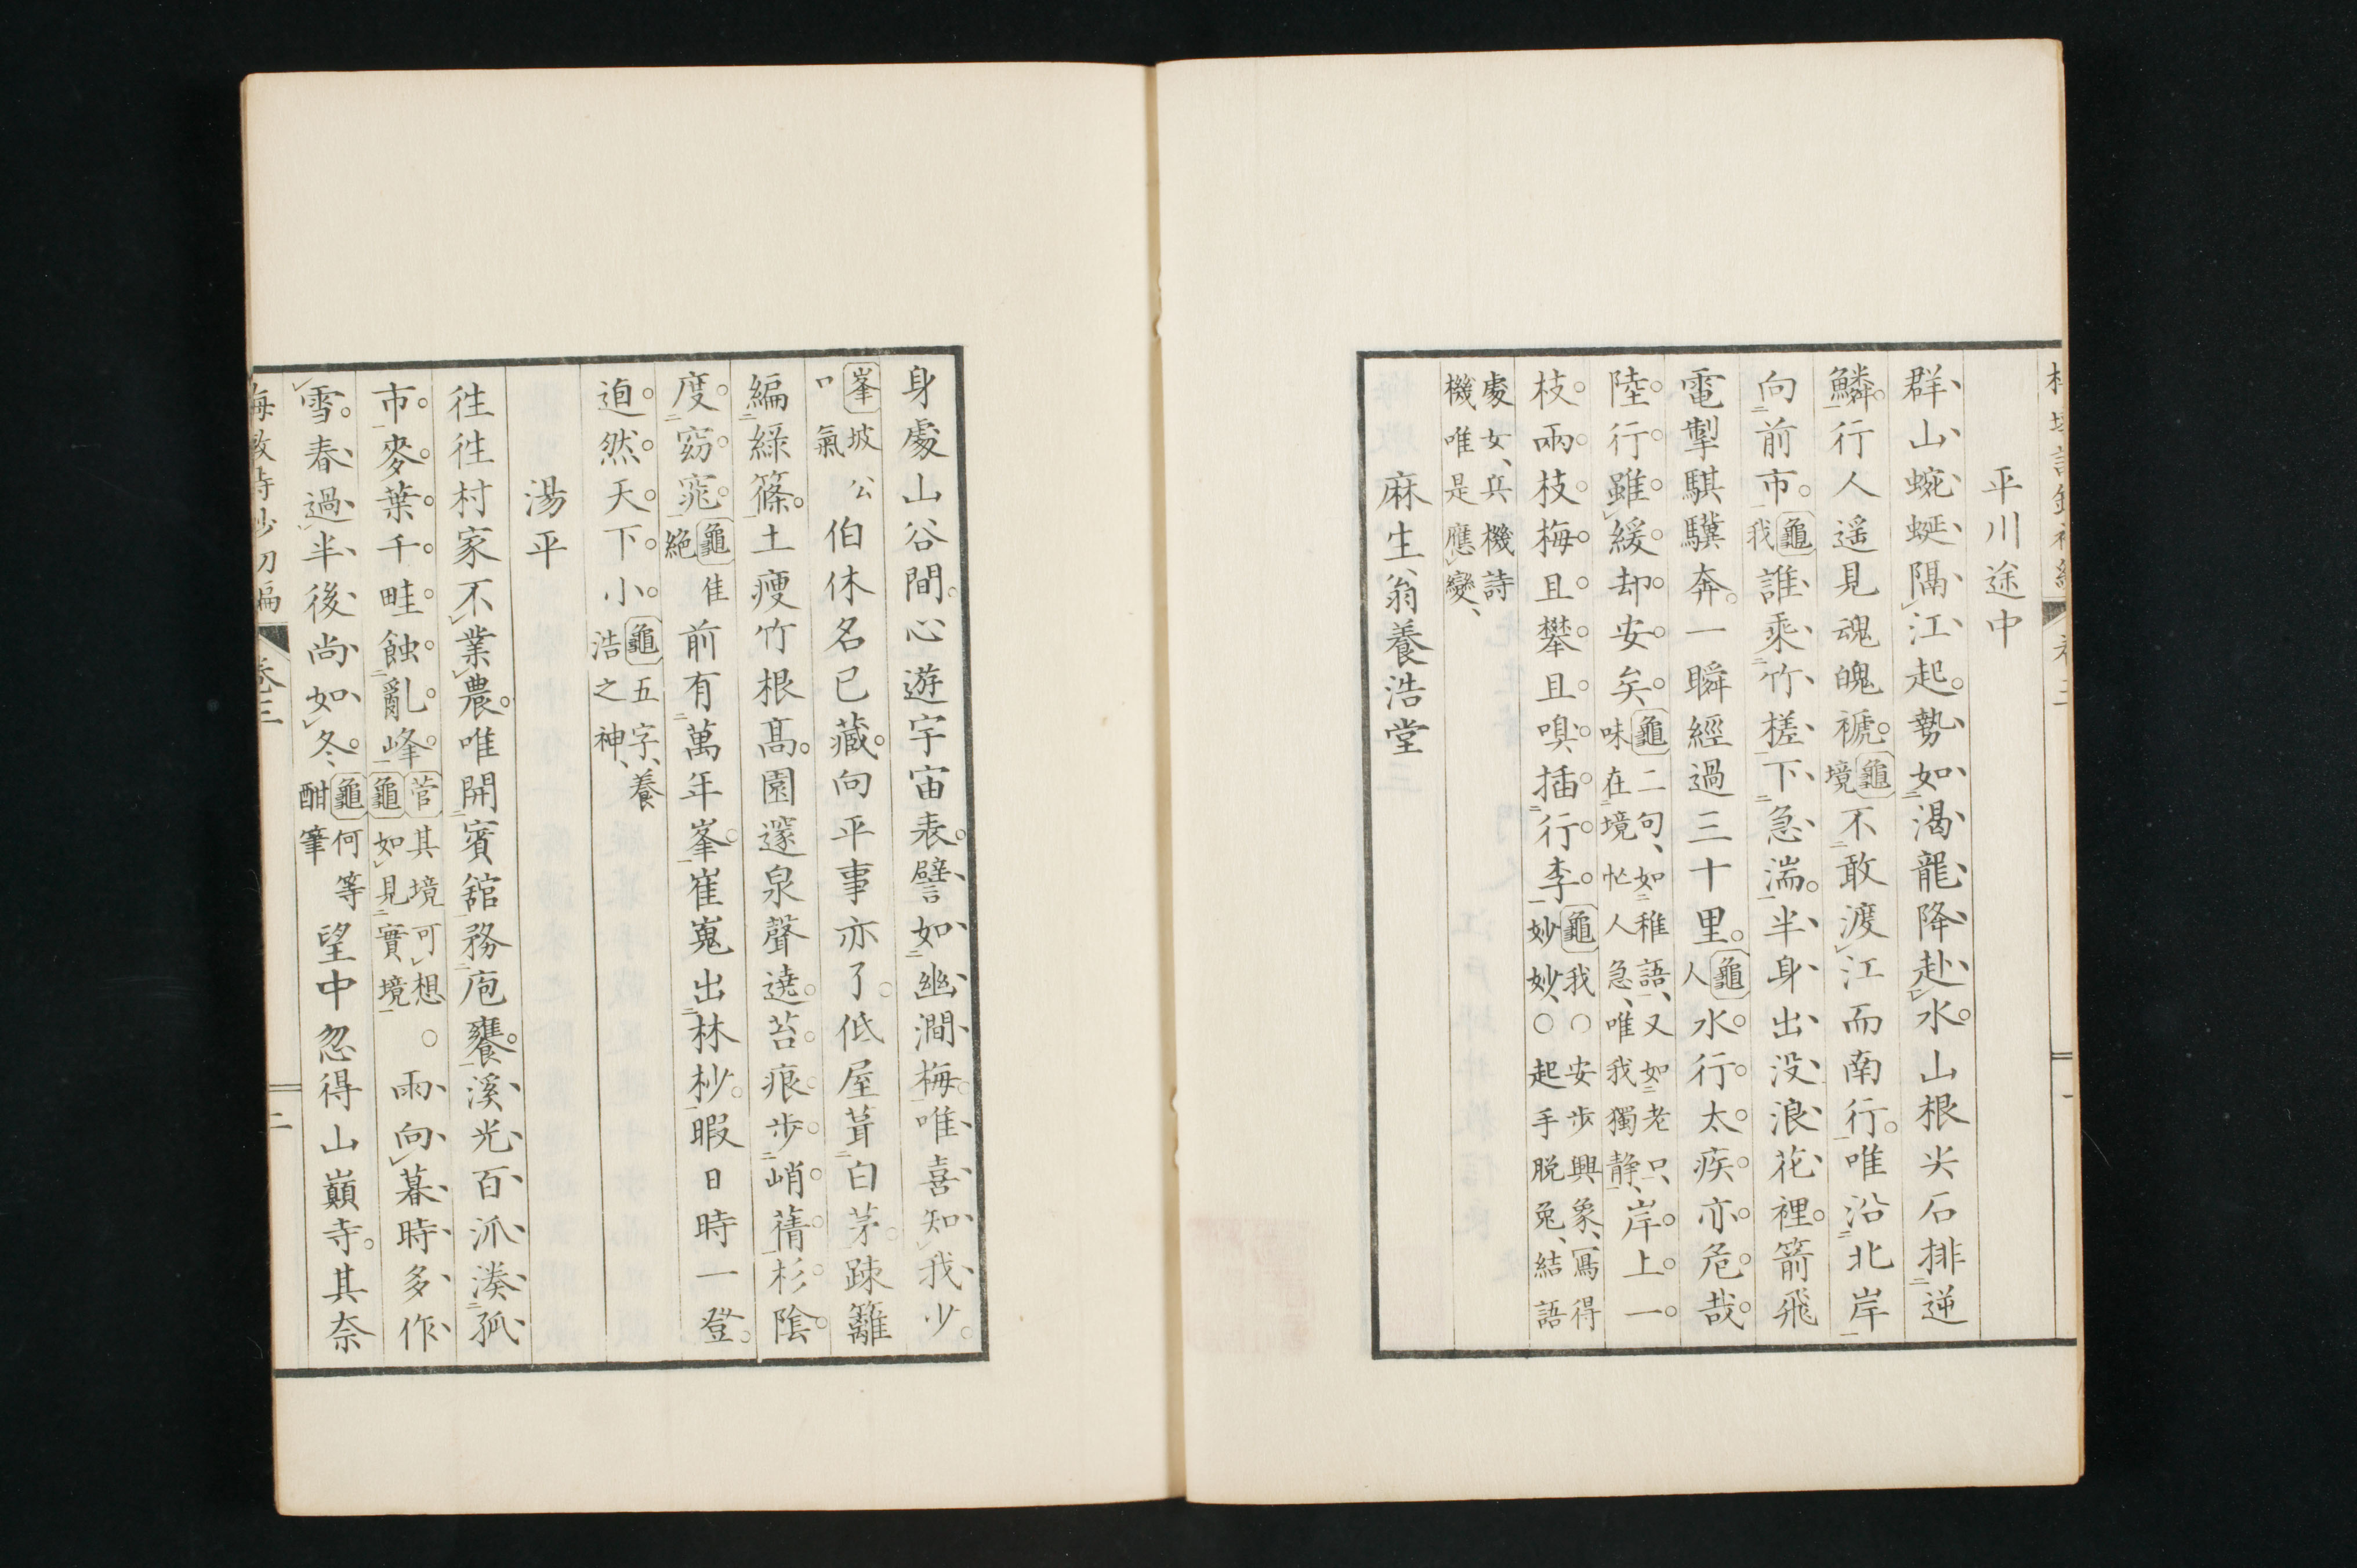 平川途中
群山蜿蜒隔江起勢如渇龍降赴水山根尖石排逆
鱗行人遥見魂魄褫龜不境敢渡江而南行唯沿北岸
向前市龜我誰乘竹槎下急湍半身出没浪花裡箭飛
電掣騏驥奔一瞬經過三十里龜人水行太疾亦危哉
陸行雖緩却安矣龜二句如稚語又如老只味在境忙人急唯我獨静岸上一
枝兩枝梅且攀且嗅插行李龜我〇安歩興象寫得妙妙〇起手脱兎結語
處女兵機詩機唯是應變
麻生翁養浩堂
身處山谷間心遊宇宙表譬如幽澗梅唯喜知我少
峯坡公口氣伯休名已藏向平事亦了低屋葺白茅疎籬
編緑篠土痩竹根髙園邃泉聲遶苔痕歩峭蒨杉陰
度窈窕龜佳絶前有萬年峯崔嵬出林杪暇日時一登
逈然天下小龜五字養浩之神
湯平
徃徃村家不業農唯開賓舘務庖饔溪光百派湊孤
市麥葉千畦蝕亂峰菅其境可想龜如見實境〇雨向暮時多作
雪春過半後尚如冬龜何等酣筆望中忽得山巓寺其奈
卷三
二